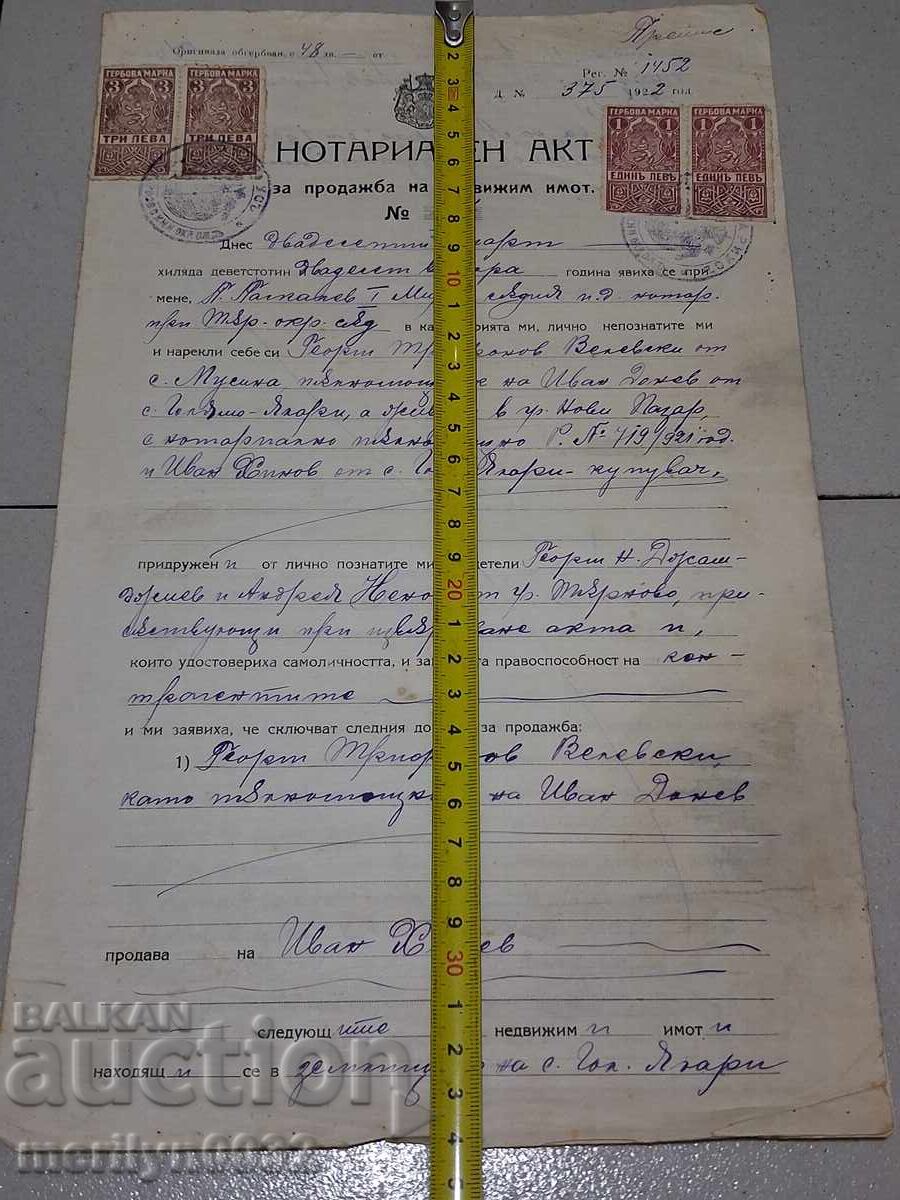 Препис
Оригинала обгербван, с 48 лв. — от
Рег. № 1452
Д. № 375 1922 год
ГЕРБОВА МАРКА ГЕРБОВА МАРКА
3 3 3 3
ТРИ ЛЕВА ТРИ ЛЕВА
ГЕРБОВА МАРКА ГЕРБОВА МАРКА
1 1 1 1
ЕДИНЪ ЛЕВЪ ЕДИНЪ ЛЕВЪ
НОТАРИА ЕН АКТ
за продажба на движим имот.
№
Днес Двадесети март
хиляда деветстотин и Двадесет втора година явиха се при
мене, I Ми съдия и. д. нотар.
при Тър. окр. съд в ка рията ми, лично непознатите ми
и нарекли себе си Георги Три фонов Велевски от
с. Мусина, пълномощник на Иван Донев от
с. Голямо-Ялари, а живущ в гр. Нови Пазар,
с нотариално пълномощно Р. № 719/921 год.
и Иван Хинов от с. Гол. Ялари - купувач,
придружен и от лично познатите ми детели Георги Н. Джам-
джиев и Андрея Нено от гр. Търново, при-
сътствующи при извършване акта и,
които удостовериха самоличността, и за та правоспособност на кон-
трагентите
и ми заявиха, че сключват следния до за продажба:
1) Георги Триф ов Велевски,
като пълномощник на Иван Донев
продава на Иван Х ев
следующ ите недвижим и имот и
находящ и се в землището на с. Гол. Ялари
2 3 4 5 6 7 8 9 10 1 2 3 4 5 6 7 8 9 20 1 2 3 4 5 6 7 8 9 30 1 2 3 4 5
BALKAN
auction
merilyn0039